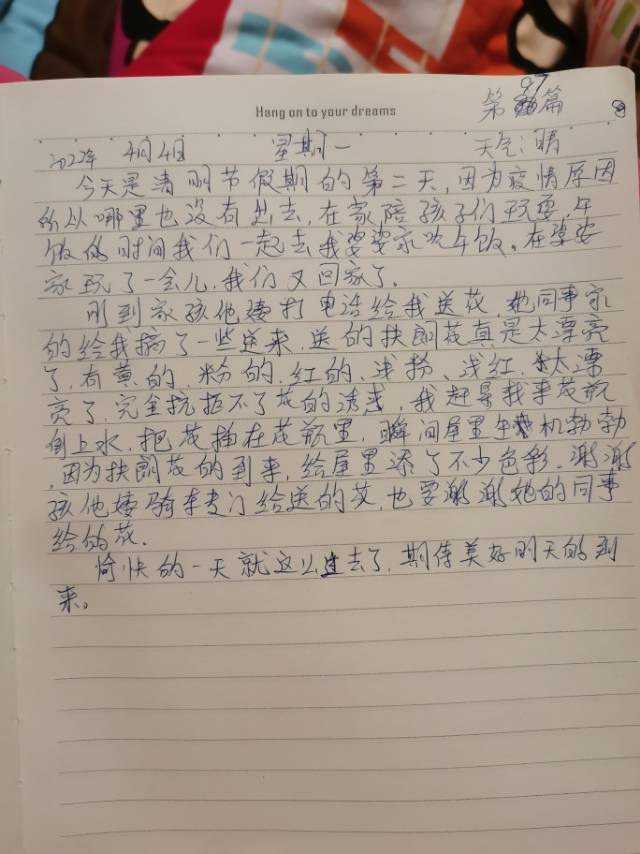 Hang on to your dreams
第97篇
2022年 4月4日 星期一 天气:晴
今天是清明节假期的第二天,因为疫情原因
所以哪里也没有出去,在家陪孩子们玩耍,午
饭的时间我们一起去我婆婆家吃午饭。在婆婆
家玩了一会儿,我们又回家了。
刚到家孩他矮打电话给我送花,她同事家
的给我摘了一些送来,送的扶郎花真是太漂亮
了,有黄的,粉的,红的,浅粉、浅红,太漂
亮了,完全抗拒不了花的诱惑,我赶快找来花瓶
倒上水,把花插在花瓶里,瞬间屋里生机勃勃
,因为扶郎花的到来,给屋里添了不少色彩,谢谢
孩他矮骑车专门给送的花,也要谢谢她的同事
给的花.
愉快的一天就这么过去了,期待美好明天的到
来。